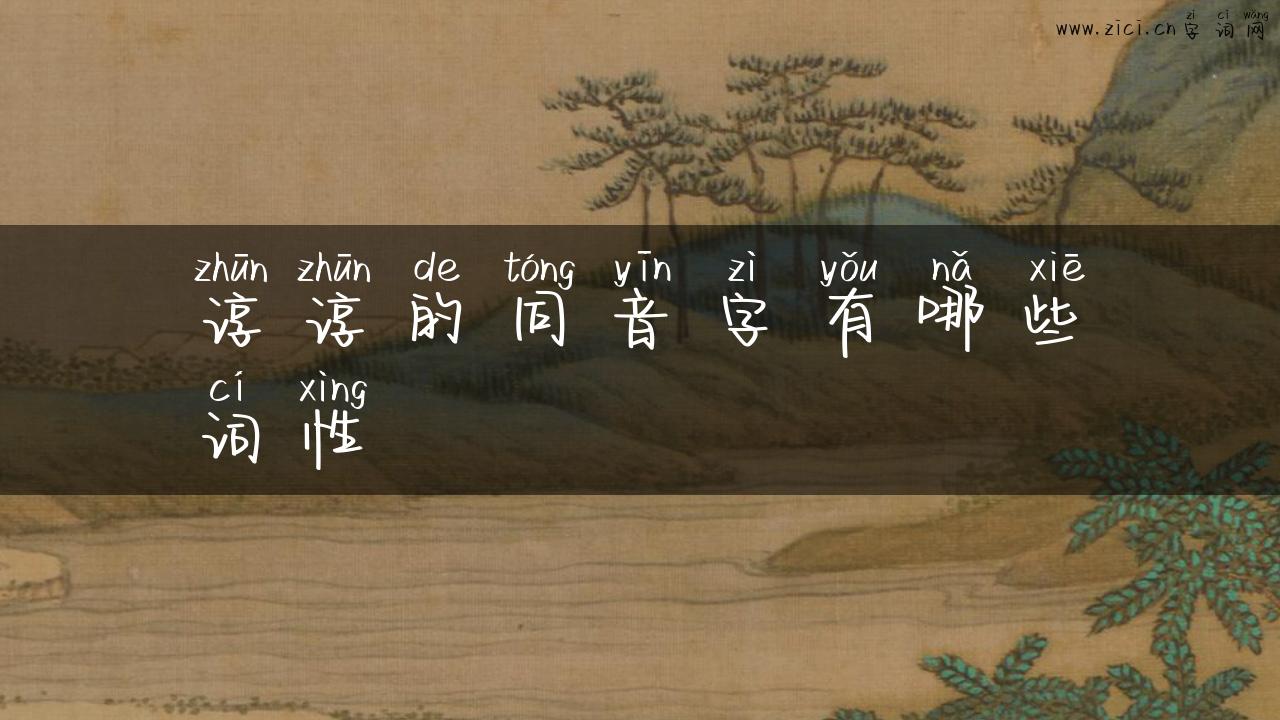 zì cí wǎng
www.zici.cn 字词网
zhūn zhūn de tóng yīn zì yǒu nǎ xiē
谆谆的同音字有哪些
cí xìng
词性